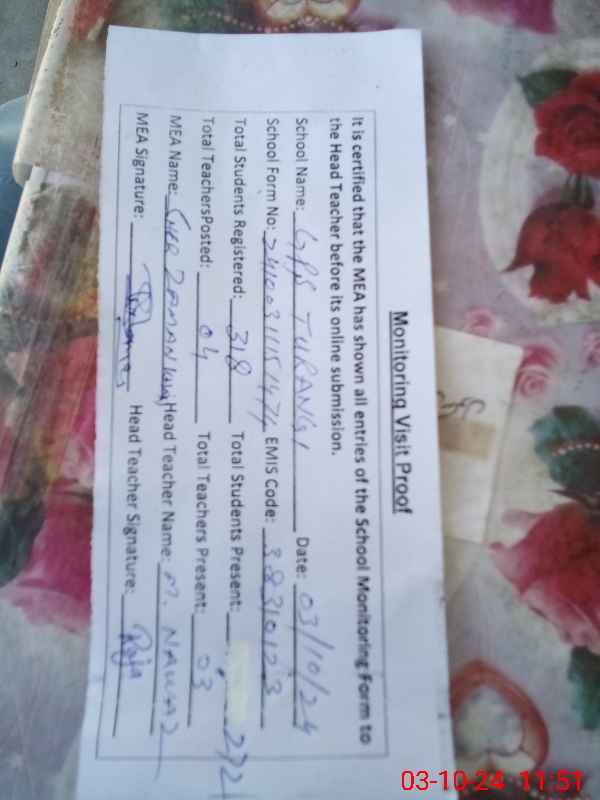 Monitoring Visit Proof
It is certified that the MEA has shown all entries of the School Monitoring Form to
the Head Teacher before its online submission.
School Name: GPS TURANGI Date: 03/10/24
School Form No: EMIS Code:
Total Students Registered: 318 Total Students Present:
Total TeachersPosted: 04 Total Teachers Present: 03
MEA Name: SHER ZAMAN Head Teacher Name: M. NAWAZ
MEA Signature: Head Teacher Signature: Raja
03-10-24 11:51